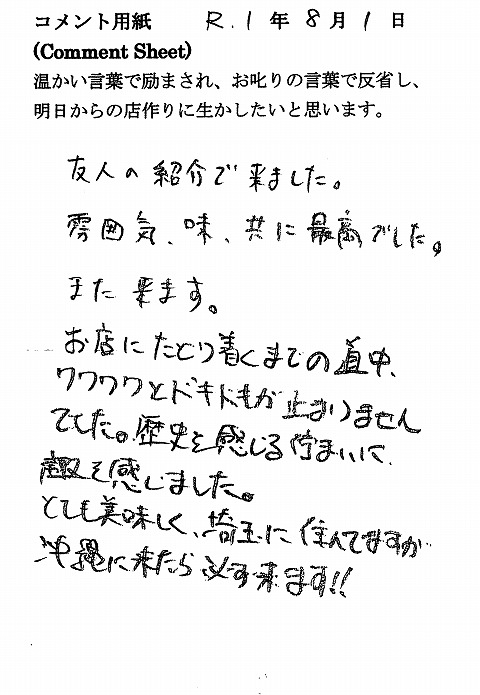 コメント用紙 R.1年8月1日
(Comment Sheet)
温かい言葉で励まされ、お叱りの言葉で反省し、
明日からの店作りに生かしたいと思います。
友人の紹介で来ました。
雰囲気、味、共に最高でした。
また来ます。
お店にたどり着くまでの道中、
ワクワクとドキドキが止まりません
でした。歴史を感じる佇まいに、
趣を感じました。
とても美味しく、埼玉に住んでますが
沖縄に来たら必ず来ます!!